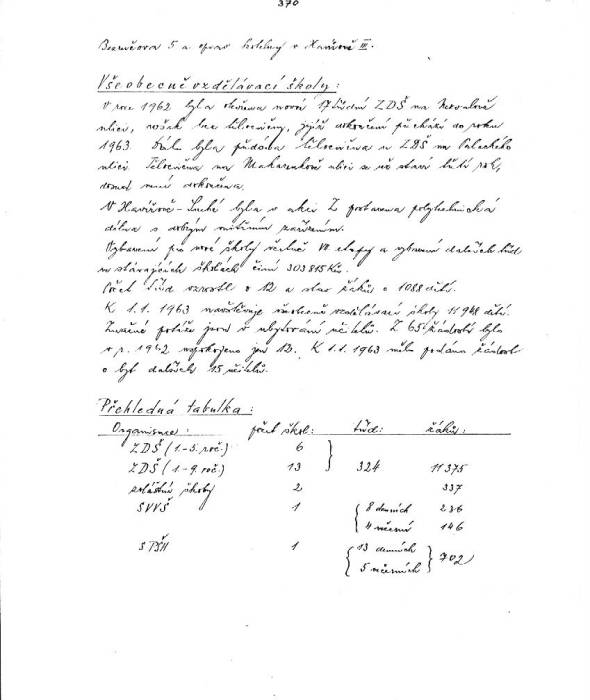 370
Bezručova 5 a oprav kotelny v Havířově III.
Všeobecně vzdělávací školy:
V roce 1962 byla otevřena nová 17třídní ZDŠ na Nezvalově
ulici, avšak bez tělocvičny, jejíž dokončení přechází do roku
1963. Dále byla předána tělocvična u ZDŠ na Palackého
ulici. Tělocvična na Makarenkově ulici se už staví třetí rok,
dosud není dokončena.
V Havířově-Suché byla v akci Z postavena polytechnická
dílna s dobrým vnitřním zařízením.
Vybavení pro nové školy včetně VI. etapy a vybavení dalších tříd
na stávajících školách činí 303 815 Kčs.
Počet tříd vzrostl o 12 a stav žáků o 1088 dětí.
K 1.1.1963 navštěvuje všeobecně vzdělávací školy 11 948 dětí.
Značné potíže jsou v ubytování učitelů. Z 65 žádostí bylo
v r. 1962 uspokojeno jen 12. K 1.1.1963 měli podánu žádost
o byt dalších 15 učitelů.
Přehledná tabulka:
Organisace: počet škol: tříd: žáků:
ZDŠ (1.-5. roč.) 6
ZDŠ (1-9. roč.) 13 324 11 375
zvláštní školy 2 337
SVVŠ 1 8 denních 236
4 večerní 146
SPŠH 1 13 denních 702
5 večerních